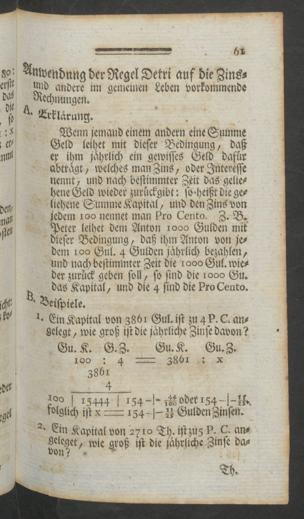 61
Anwendung der Regel Detri auf die Zins-
und andere im gemeinen Leben vorkommende
Rechnungen.
A. Erklärung.
Wenn jemand einem andern eine Summe
Geld leihet mit dieser Bedingung, daß
er ihm jährlich ein gewisses Geld dafür
abträgt, welches man Zins, oder Interesse
nennt, und nach bestimmter Zeit das gelie-
hene Geld wieder zurückgibt: so heißt die ge-
liehene Summe Kapital, und den Zins von
jedem 100 nennet man Pro Cento. Z. B.
Peter leihet dem Anton 1000 Gulden mit
dieser Bedingung, daß ihm Anton von je-
dem 100 Gul. 4 Gulden jährlich bezahlen,
und nach bestimmter Zeit die 1000 Gul. wie-
der zurück geben soll, so sind die 1000 Gu.
das Kapital, und die 4 sind die Pro Cento.
B. Beispiele.
1. Ein Kapital von 3861 Gul. ist zu 4 P. C. an-
gelegt, wie groß ist die jährliche Zinse davon?
Gu. K. G. Z. Gu. K. Gu. Z.
100 : 4 = 3861 : x
3861
4
100 | 15444 | 154 -|- 44/100 oder 154 -|- 11/25,
folglich ist x = 154 -|- 11/25 Gulden Zinsen.
2. Ein Kapital von 2710 Th. ist zu 5 P. C. an-
geleget, wie groß ist die jährliche Zinse da-
von?
Th.